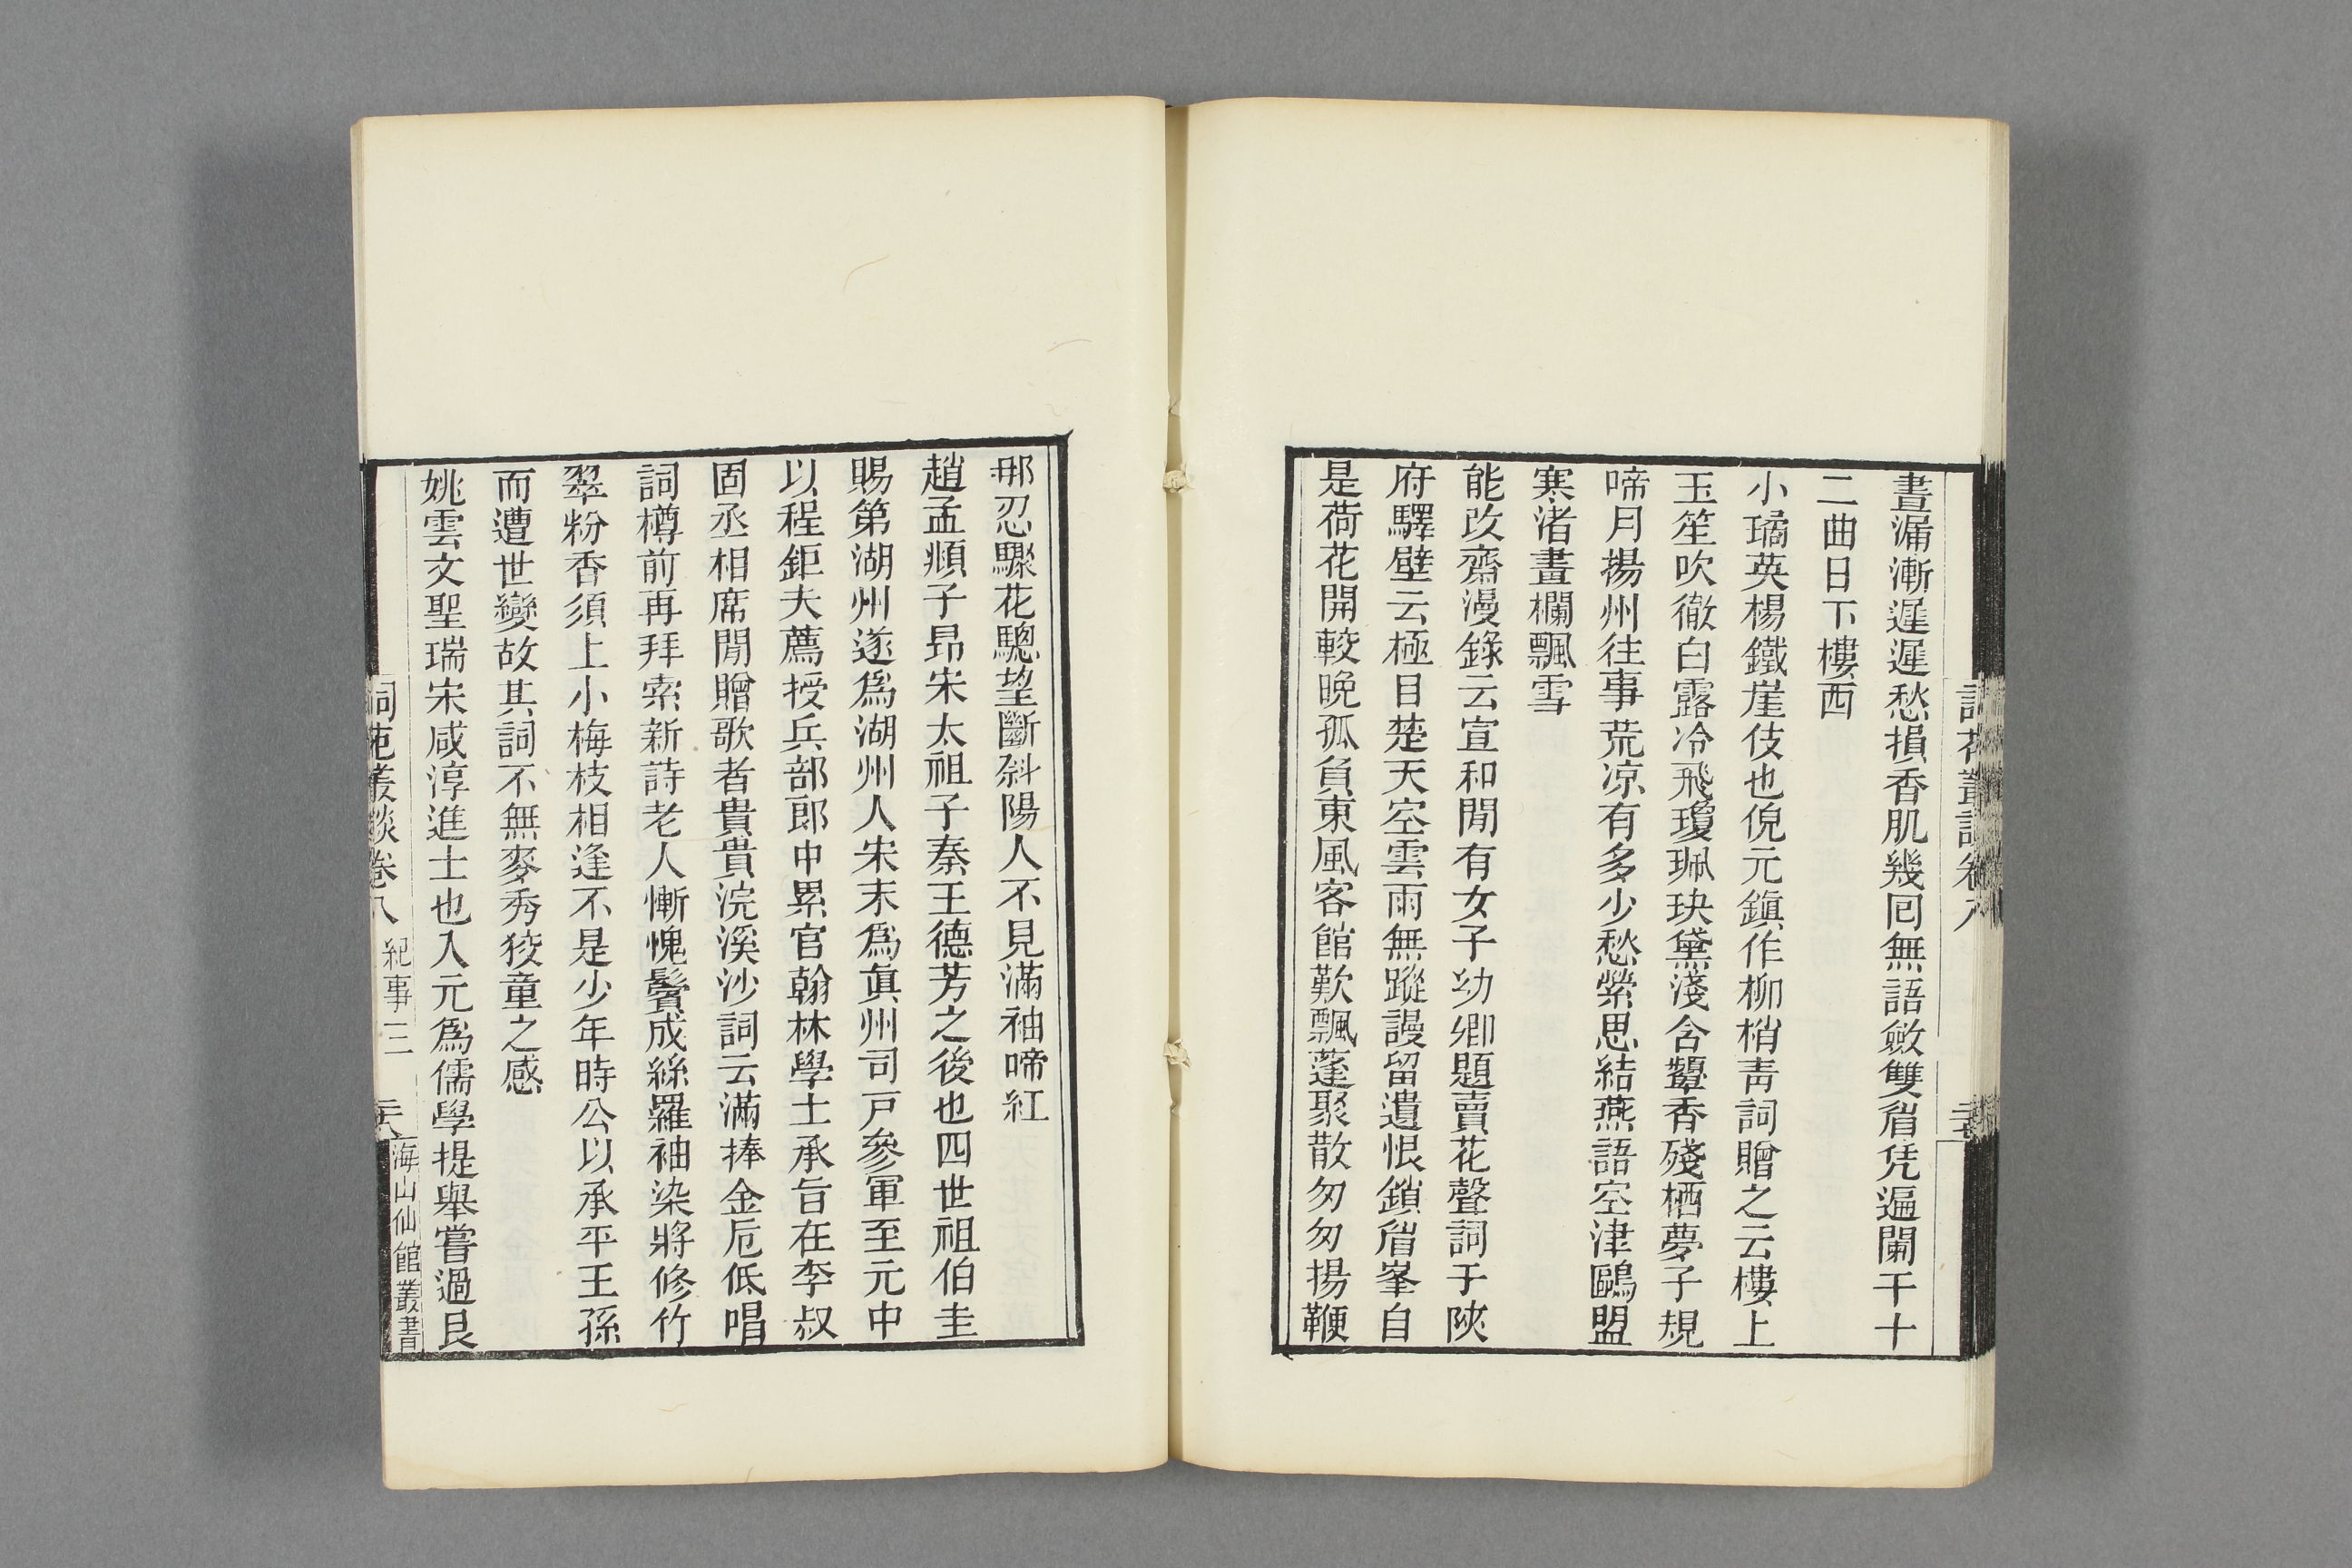 晝漏漸遲遲愁損香肌幾囘無語斂雙眉凭遍闌干十
二曲日下樓西
小璚英楊鐵崖伎也倪元鎭作柳梢靑詞贈之云樓上
玉笙吹徹白露冷飛瓊珮玦黛淺含顰香殘栖夢子規
啼月揚州往事荒凉有多少愁縈思結燕語空津鷗盟
寒渚畫欄飄雪
能改齋漫錄云宣和閒有女子幼卿題賣花聲詞于陝
府驛壁云極目楚天空雲雨無蹤謾留遺恨鎖眉峯自
是荷花開較晚孤負東風客館歎飄蓬聚散匆匆揚鞭
那忍驟花驄望斷斜陽人不見滿袖啼紅
趙孟頫子昂宋太祖子秦王德芳之後也四世祖伯圭
賜第湖州遂爲湖州人宋末爲眞州司戸參軍至元中
以程鉅夫薦授兵部郎中累官翰林學士承旨在李叔
固丞相席閒贈歌者貴貴浣溪沙詞云滿捧金卮低唱
詞樽前再拜索新詩老人慚愧鬢成絲羅袖染將修竹
翠粉香須上小梅枝相逢不是少年時公以承平王孫
而遭世變故其詞不無麥秀狡童之感
姚雲文聖瑞宋咸淳進士也入元爲儒學提舉嘗過艮
詞苑叢談卷八 紀事三 二十八 海山仙館叢書